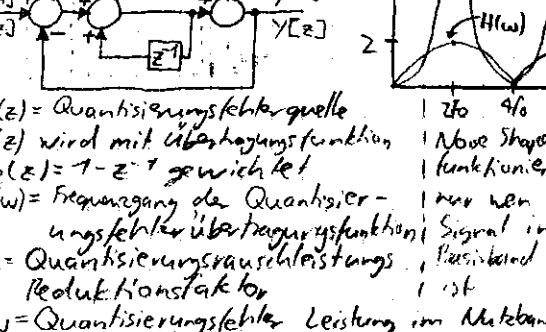 z] - + Y[z]
z⁻¹
H(ω)
2
2f₀ 4f₀
(z) = Quantisierungsfehlerquelle
(z) wird mit Übertragungsfunktion
(z) = 1 - z⁻¹ gewichtet
ω) = Frequenzgang der Quantisier-
ungsfehlerübertragungsfunktion
= Quantisierungsrauschleistungs
Reduktionsfaktor
= Quantisierungsfehler Leistung im Nutzban
Noise Shape
funktionier
nur wen
Signal i
Basisband
ist